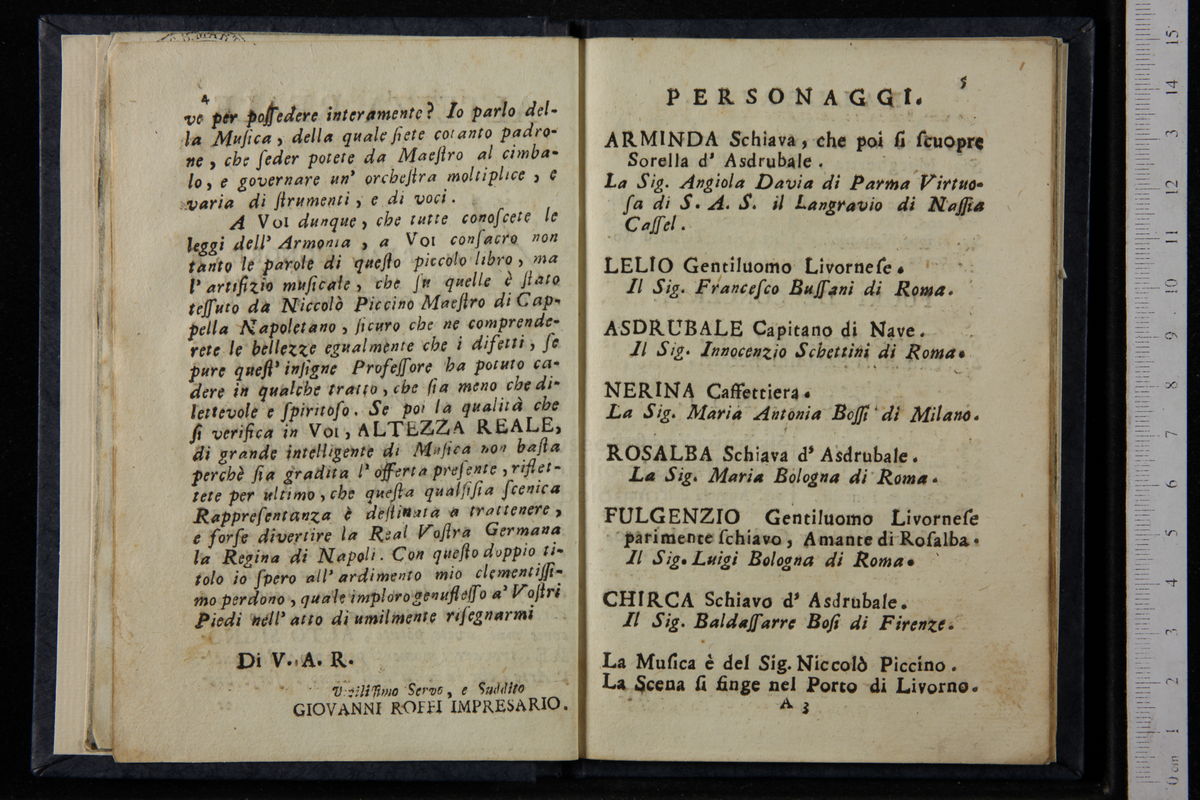 4
ve per poſſedere interamente? Io parlo del-
la Muſica, della quale ſiete cotanto padro-
ne, che ſeder potete da Maeſtro al cimba-
lo, e governare un' orcheſtra moltiplice, e
varia di ſtrumenti, e di voci.
A VOI dunque, che tutte conoſcete le
leggi dell' Armonia, a VOI conſacro non
tanto le parole di queſto piccolo libro, ma
l'artifizio muſicale, che ſu quelle è ſtato
teſſuto da Niccolò Piccino Maeſtro di Cap-
pella Napoletano, ſicuro che ne comprende-
rete le bellezze egualmente che i difetti, ſe
pure queſt' inſigne Profeſſore ha potuto ca-
dere in qualche tratto, che ſia meno che di-
lettevole e ſpiritoſo. Se poi la qualità che
ſi verifica in VOI, ALTEZZA REALE,
di grande intelligente di Muſica non baſta
perchè ſia gradita l'offerta preſente, riflet-
tete per ultimo, che queſta qualſiſia ſcenica
Rappreſentanza è deſtinata a trattenere,
e forſe divertire la Real Voſtra Germana
la Regina di Napoli. Con queſto doppio ti-
tolo io ſpero all' ardimento mio clementiſſi-
mo perdono, quale imploro genufleſſo a' Voſtri
Piedi nell' atto di umilmente riſegnarmi
Di V. A. R.
Umiliſſimo Servo, e Suddito
GIOVANNI ROFFI IMPRESARIO.
5
PERSONAGGI.
ARMINDA Schiava, che poi ſi ſcuopre
Sorella d' Asdrubale.
La Sig. Angiola Davia di Parma Virtuo-
ſa di S. A. S. il Langravio di Naſſia
Caſſel.
LELIO Gentiluomo Livorneſe.
Il Sig. Franceſco Buſſani di Roma.
ASDRUBALE Capitano di Nave.
Il Sig. Innocenzio Schettini di Roma.
NERINA Caffettiera.
La Sig. Maria Antonia Boſſi di Milano.
ROSALBA Schiava d' Asdrubale.
La Sig. Maria Bologna di Roma.
FULGENZIO Gentiluomo Livorneſe
parimente ſchiavo, Amante di Roſalba.
Il Sig. Luigi Bologna di Roma.
CHIRCA Schiavo d' Asdrubale.
Il Sig. Baldaſſarre Boſi di Firenze.
La Muſica è del Sig. Niccolò Piccino.
La Scena ſi finge nel Porto di Livorno.
A 3
15
14
13
12
11
10
9
8
7
6
5
4
3
2
1
0 cm